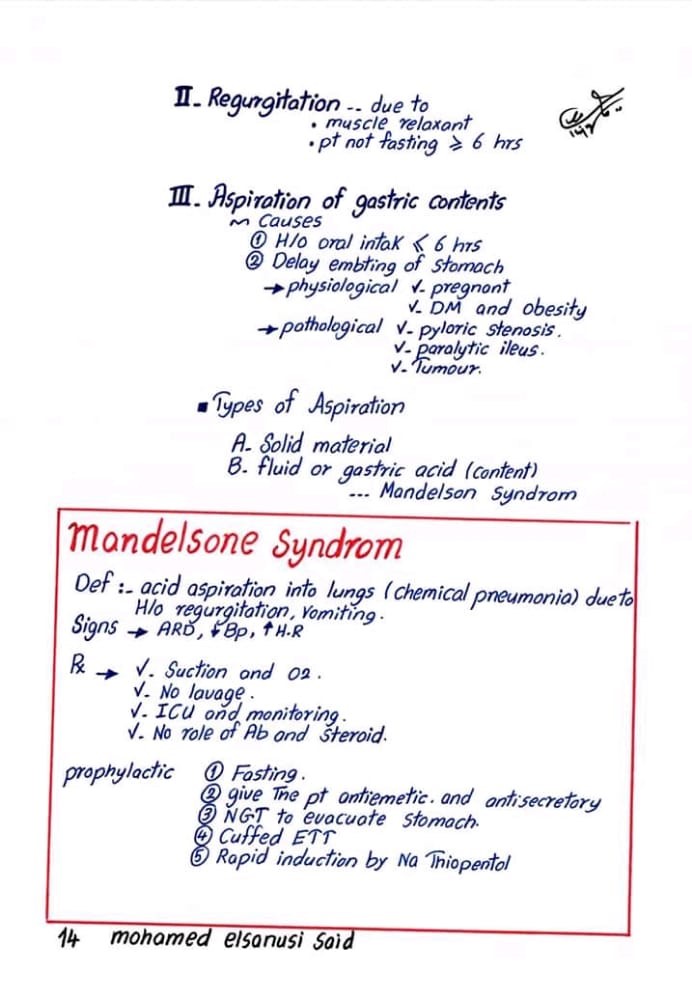 II- Regurgitation -- due to
• muscle relaxant
• pt not fasting ⩾ 6 hrs
III- Aspiration of gastric contents
Causes
① H/o oral intak ⩽ 6 hrs
② Delay embting of stomach
→ physiological √- pregnant
√- DM and obesity
→ pathological √- pyloric stenosis.
√- paralytic ileus.
√- Tumour.
▪ Types of Aspiration
A- Solid material
B- fluid or gastric acid (content)
--- Mandelson Syndrom
Mandelsone Syndrom
Def :- acid aspiration into lungs (chemical pneumonia) due to
H/o regurgitation, vomiting.
Signs → ARD, ↓Bp, ↑H.R
℞ → √- Suction and O2.
√- No lavage.
√- ICU and monitoring.
√- No role of Ab and steroid.
prophylactic ① Fasting.
② give The pt antiemetic. and antisecretory
③ NGT to evacuate stomach.
④ Cuffed ETT
⑤ Rapid induction by Na Thiopental
14 mohamed elsanusi said